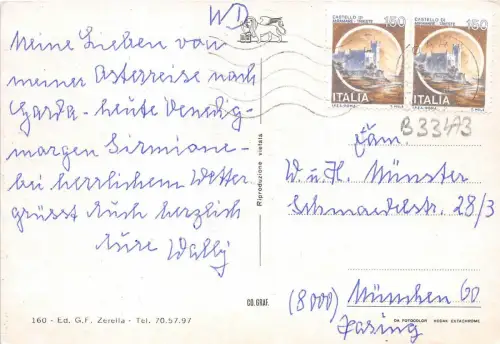 WD
Meine Lieben von
meiner Osterreise nach
Garda - heute Venedig -
morgen Sirmione -
bei herrlichem Wetter
grüsst Euch herzlich
Eure Wally
160 - Ed. G.F. Zerella - Tel. 70.57.97
Riproduzione vietata
CO. GRAF.
CASTELLO DI
MIRAMARE · TRIESTE
150
ITALIA
CASTELLO DI
MIRAMARE · TRIESTE
150
ITALIA
B33473
Fam.
W. u. H. Münster
Schmaedelstr. 28/3
(8000) München 60
Pasing
DA FOTOCOLOR KODAK EKTACHROME